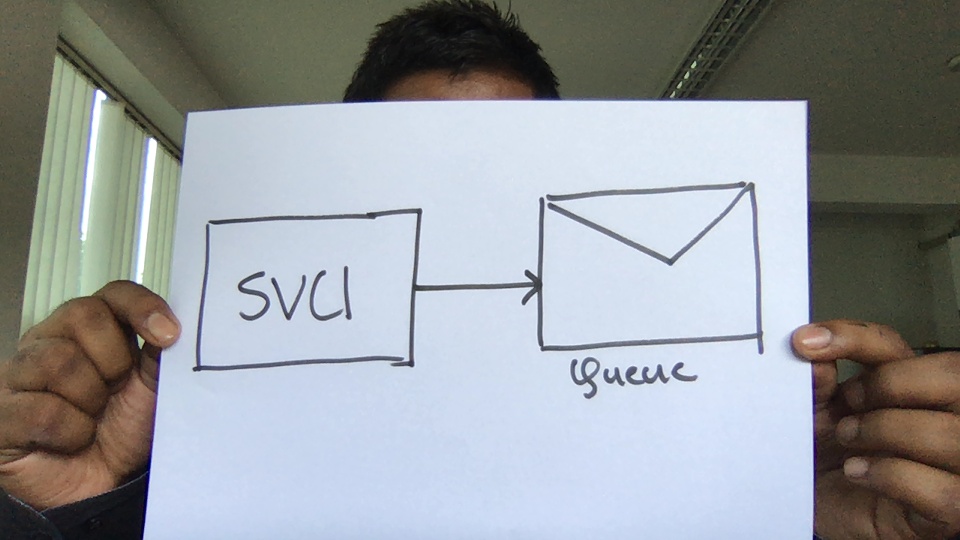 SVC1
Queue